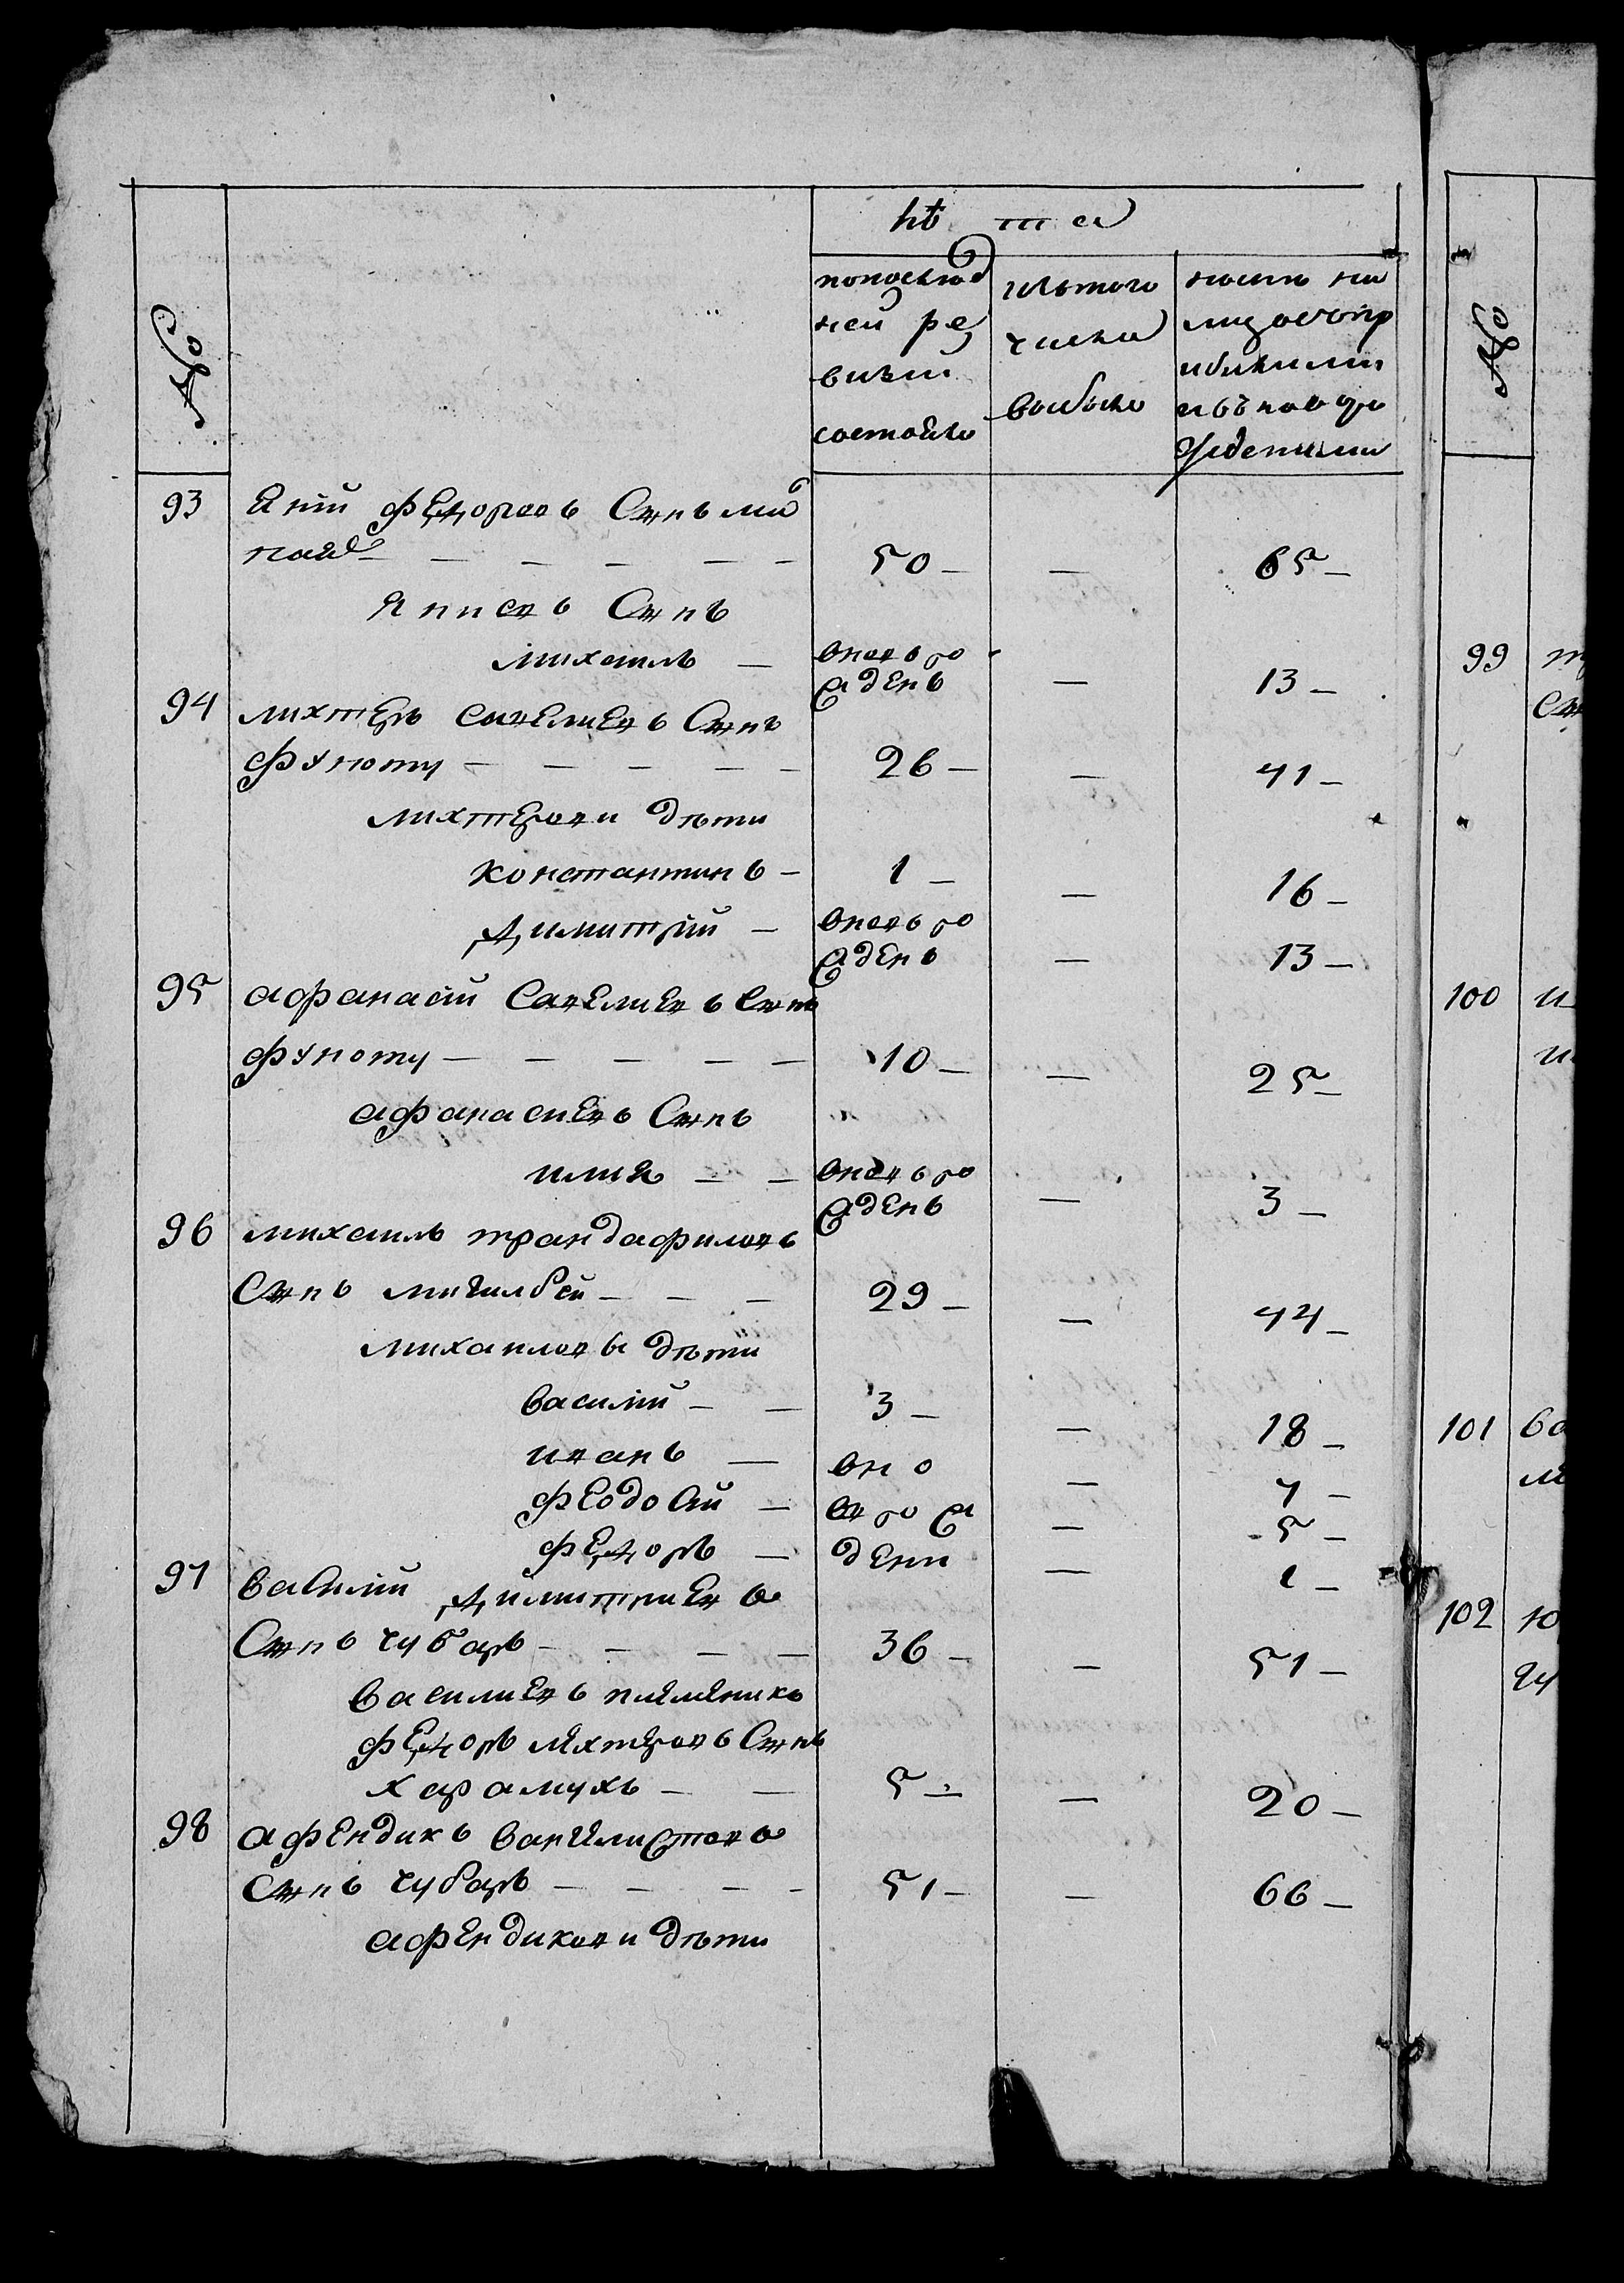 лѣ та
№
попослѣд
ней ре
визіи
состояло
изътого
числа
выбыло
нынѣ на
лицо съ пр
ибылыми
ивъновь ро
жденными
93 Яній федоровъ Сынъ ми
ной — 50 — — 65 —
Яниевъ Сынъ
михаилъ — вневъ ро
жденъ — 13 —
94 лихтеръ савелиевъ Сынъ
фуноту — 26 — — 41 —
лихтерови дѣти
константинъ — 1 — — 16 —
димитрій — вневъ ро
жденъ — 13 —
95 афанасій Савелиевъ Сынъ
фуноту — 10 — — 25 —
афанасиевъ Сынъ
илия — — вневъ ро
жденъ — 3 —
96 михаилъ трандафиловъ
Сынъ — 29 — — 44 —
михаиловы дѣти
василій — — 3 — — 18 —
иванъ — вн о — 7 —
феодосій — въ ро ж — 5 —
федоръ — дени — 1 —
97 василій димитриевъ
Сынъ чубаръ — 36 — — 51 —
василиевъ плямяникъ
федоръ лихтеровъ Сынъ
харамухъ — — 5 — — 20 —
98 афендикъ вангилистовъ
Сынъ чубаръ — 51 — — 66 —
афендикови дѣти
№
99
100
101
102